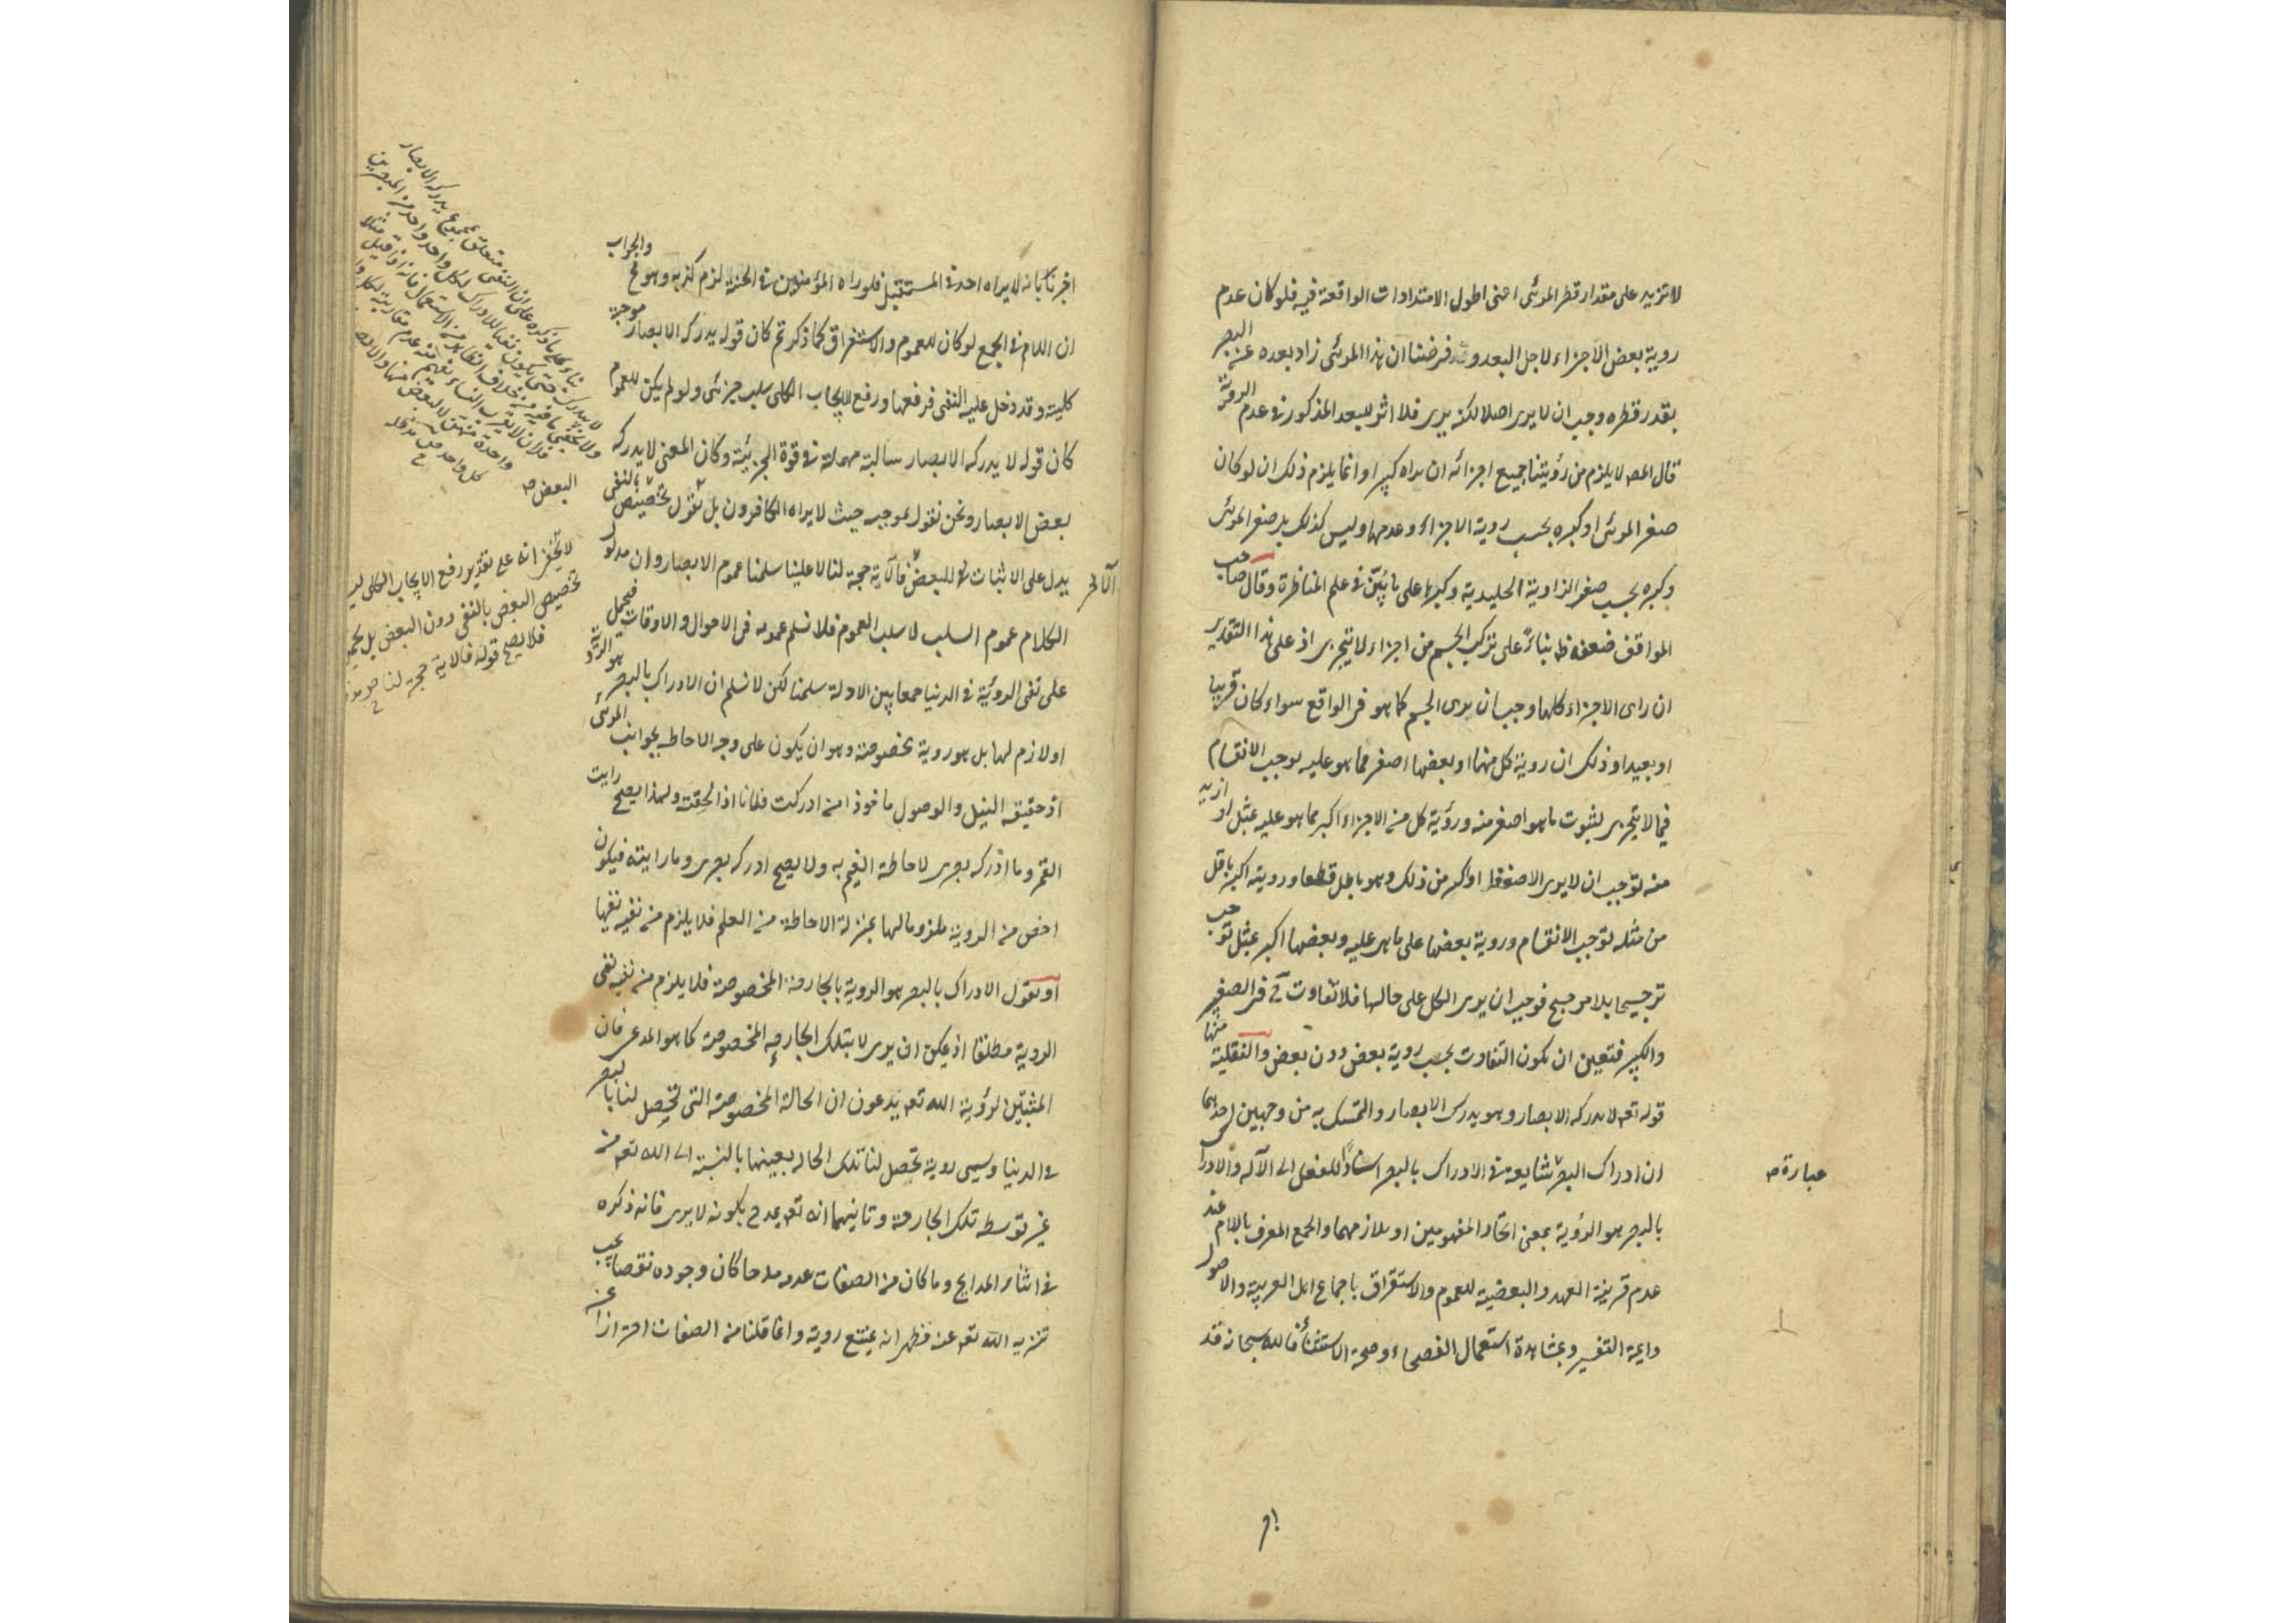 لا تزيد على مقدار قطر المرئى اعنى اطول الامتدادات الواقعة فيه فلو كان عدم
روية بعض الاجزاء لاجل البعد وقد فرضنا ان هذا المرئى زاد بعده عن البصر
بقدر قطره وجب ان لا يرى اصلا لكنه يرى فلا اثر للبعد المذكور فى عدم الروية
قال المص لا يلزم من رؤيتنا جميع اجزائه ان نراه كبيرا وانما يلزم ذلك ان لو كان
صغر المرئى او كبره بحسب روية الاجزاء وعدمها وليس كذلك بل صغر المرئى
وكبره بحسب صغر الزاوية الجليدية وكبرها على ما تبين فى علم المناظرة وقال صاحب
المواقف ضعفه ظ بناءً على تركب الجسم من اجزاء لا يتجزى اذ على هذا التقدير
ان راى الاجزاء كلها وجب ان يرى الجسم كما هو فى الواقع سواء كان قريبا
او بعيدا وذلك ان روية كل منها او بعضها اصغر مما هو عليه يوجب الانقسام
فيما لا يتجزى لثبوت ما هو اصغر منه ورؤية كل من الاجزاء اكبر مما هو عليه بمثل او ازيد
منه توجب ان لا يرى الا ضعفا او اكبر من ذلك وهو باطل قطعا وروية اكبر باقل
من مثله توجب الانقسام وروية بعضها على ما هى عليه وبعضها اكبر بمثل توجب
ترجيحا بلا مرجح فوجب ان يرى الكل على حالها فلا تفاوت ح فى الصغر
والكبر فتعين ان يكون التفاوت بحسب روية بعض دون بعض والنقلية منها
قوله تعـ لا تدركه الابصار وهو يدرك الابصار والتمسك به من وجهين احدهما
ان ادراك البصر شايعة فى الادراك بالبصر اسنادًا للفعل الى الآلة والادراك
عبارة
بالبصر هو الرؤية بمعنى اتحاد المفهومين او تلازمهما والجمع المعرف باللام عند
عدم قرينة العهد والبعضية للعموم والاستغراق باجماع اهل العربية والاصول
وايمة التفسير وبشهادة استعمال الفصحاء وصحة الاستثناء فالله سبحانه قد
اخبرنا بانه لا يراه احد فى المستقبل فلو راه المؤمنون فى الجنة لزم كذبه وهو مح والجواب
ان اللام فى الجمع لو كان للعموم والاستغراق كما ذكرتم كان قوله يدركه الابصار موجبة
كلية وقد دخل عليه النفى فرفعها ورفع الايجاب الكلى سلب جزئى ولو لم يكن للعموم
كان قوله لا يدركه الابصار سالبة مهملة فى قوة الجزئية وكان المعنى لا يدركه
بعض الابصار ونحن نقول بموجبه حيث لا يراه الكافرون بل نقول تخصيص البعض بالنفى
يدل على الاثبات للبعض الآخر فالآية حجة لنا لا علينا سلمنا عموم الابصار وان مدلول
الكلام عموم السلب لا سلب العموم فلا نسلم عمومه فى الاحوال والاوقات فيحمل
على نفى الروئية فى الدنيا جمعا بين الادلة سلمنا لكن لا نسلم ان الادراك بالبصر هو الرؤية
او لازم لها بل هو روية مخصوصة وهو ان يكون على وجه الاحاطة بجوانب المرئى
اذ حقيقه النيل والوصول ماخوذا من ادركت فلانا اذا لحقته ولهذا يصح رايت
القمر وما ادركه بصرى لاحاطة الغيم به ولا يصح ادركه بصرى وما رايته فيكون
اخص من الروية ملزوما لها بمنزلة الاحاطة من العلم فلا يلزم من نفيه نفيها
او نقول الادراك بالبصر هو الروية بالجارحة المخصوصة فلا يلزم من نفيه نفى
الروية مطلقا اذ يمكن ان يرى لا بتلك الجارحة المخصوصة كما هو المدعى فان
المثبتين لرؤية الله تعـ يدعون ان الحالة المخصوصة التى تحصل لنا بالبصر
فى الدنيا وسمى روية تحصل لنا تلك الحاله بعينها بالنسبة الى الله تعـ من
غير توسط تلك الجارحة وثانيهما انه تعـ تمدح بكونه لا يرى فانه ذكره
فى اثناء المدايح وما كان من الصفات عدمه مدحا كان وجوده نقصا يجب
تنزيه الله تعـ عنه فظهر انه يمتنع روية وانما قلنا من الصفات احترازا عن
لا يخفى انه على تقدير رفع الايجاب الكلى
تخصيص البعض بالنفى دون البعض بل
فلا يصح قوله فالاية حجة لنا